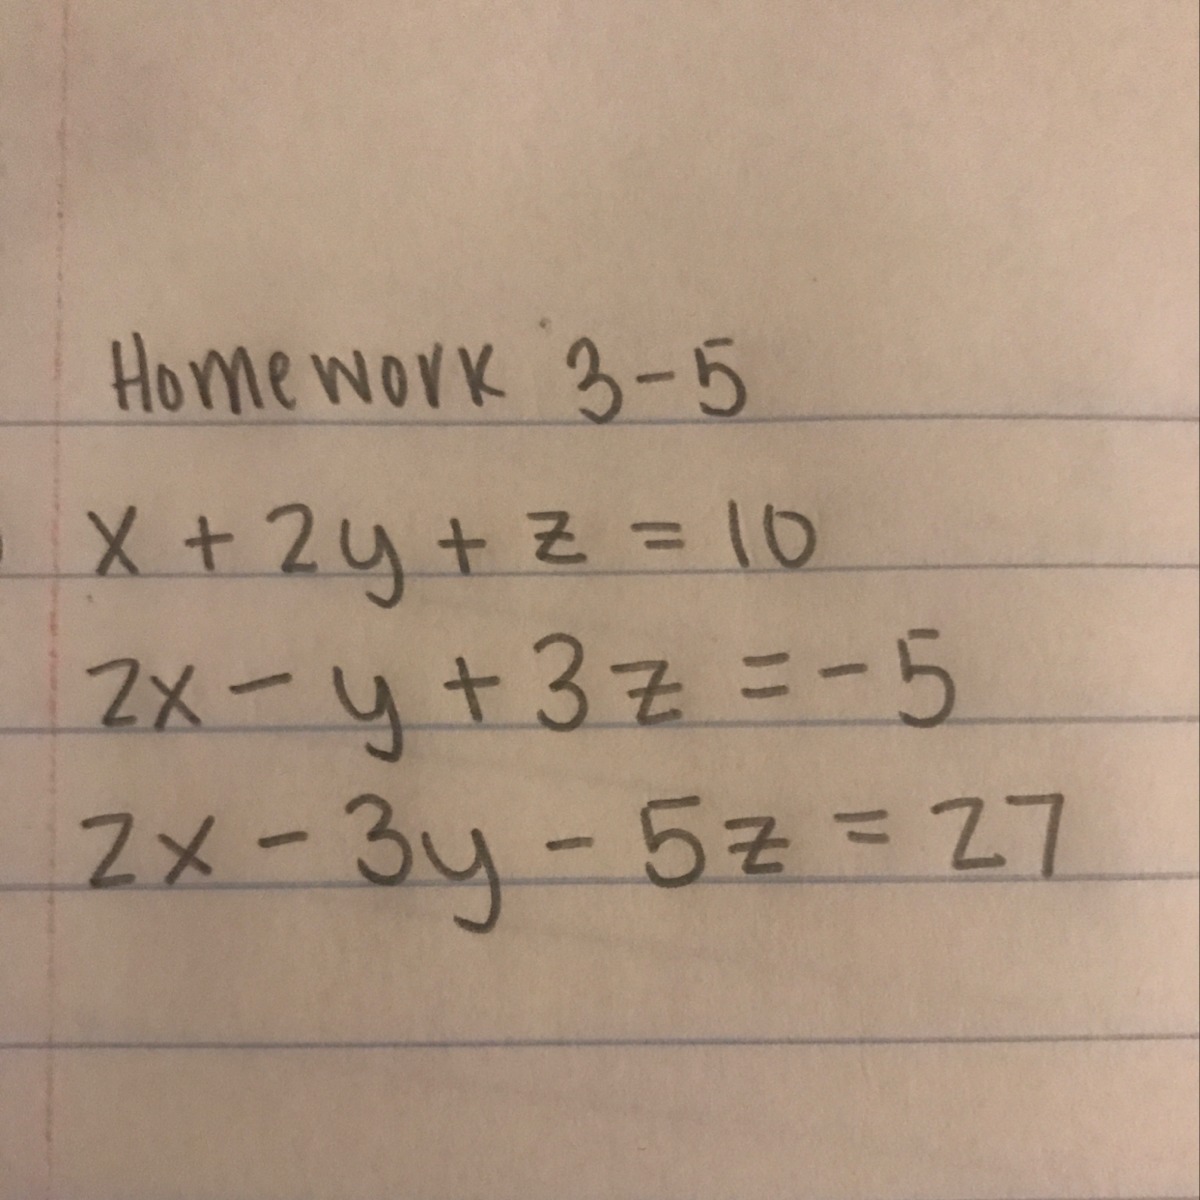 Homework 3-5
x + 2y + z = 10
2x - y + 3z = -5
2x - 3y - 5z = 27